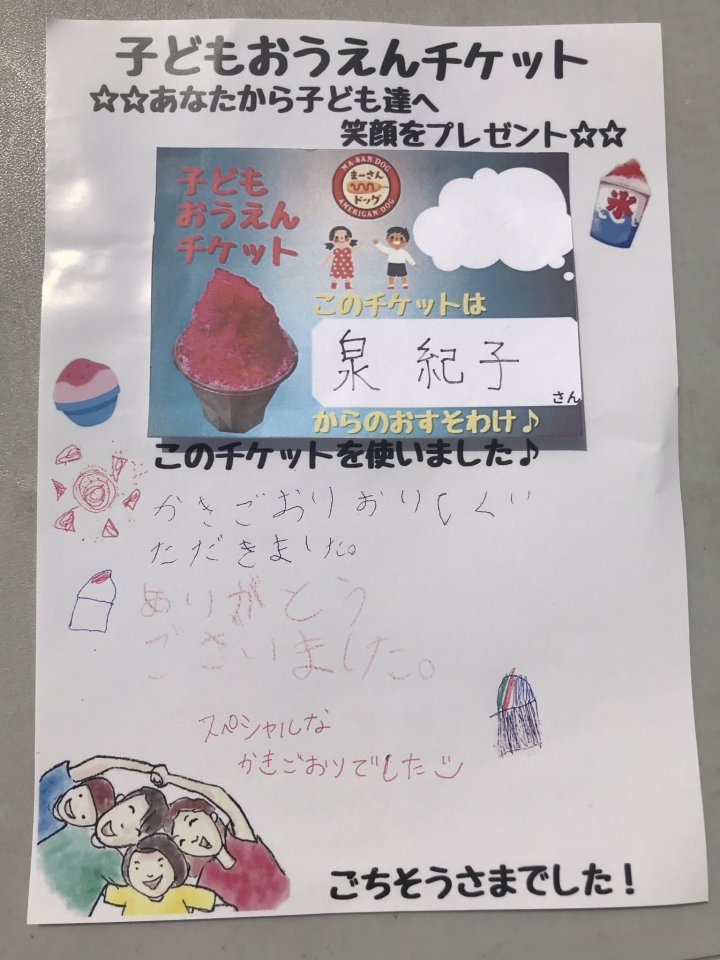 子どもおうえんチケット
☆☆あなたから子ども達へ
笑顔をプレゼント☆☆
子ども
おうえん
チケット
MA SAN DOG
まーさん
ドッグ
AMERICAN DOG
氷
このチケットは
泉 紀子
さん
からのおすそわけ♪
このチケットを使いました♪
かきごおりおりしくい
ただきました。
ありがとう
ございました。
スペシャルな
かきごおりでした
ごちそうさまでした！